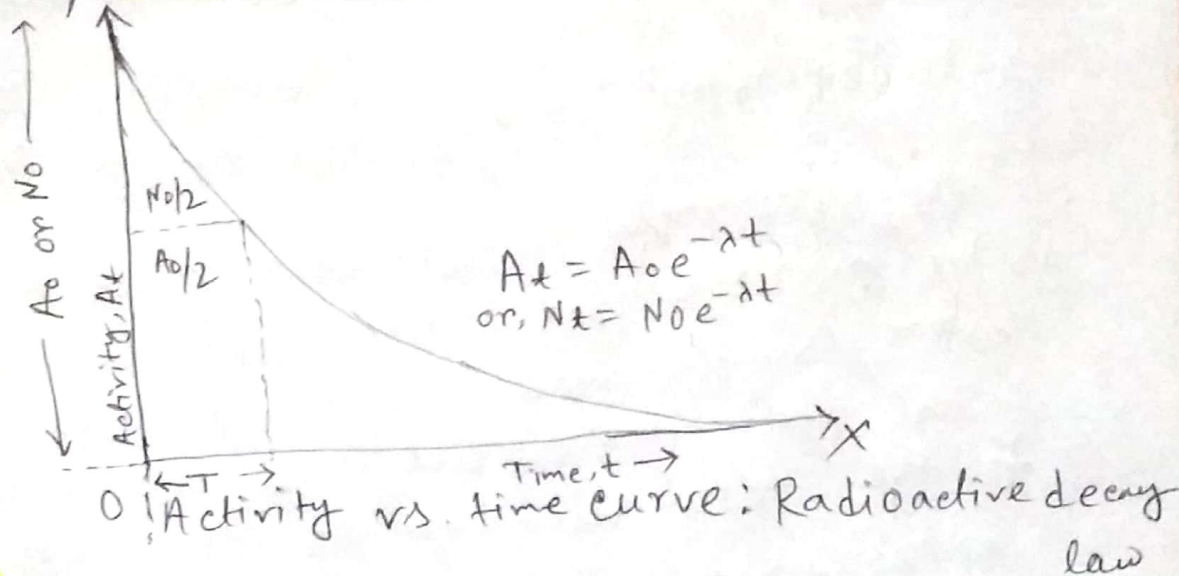 Ao or No
Activity, At
No/2
Ao/2
At = Aoe^-λt
or, Nt = Noe^-λt
X
Time, t →
← T →
O
Activity vs. time curve: Radioactive decay
law